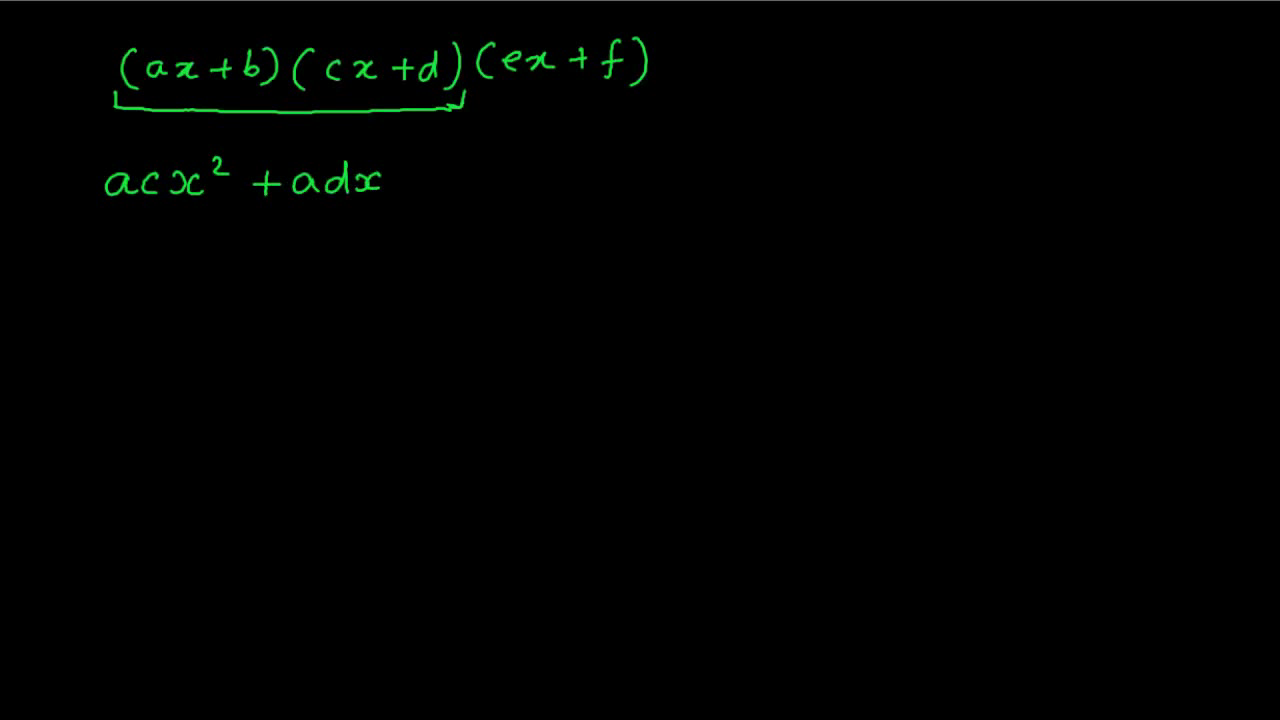 (ax+b)(cx+d)(ex+f)
acx² + adx